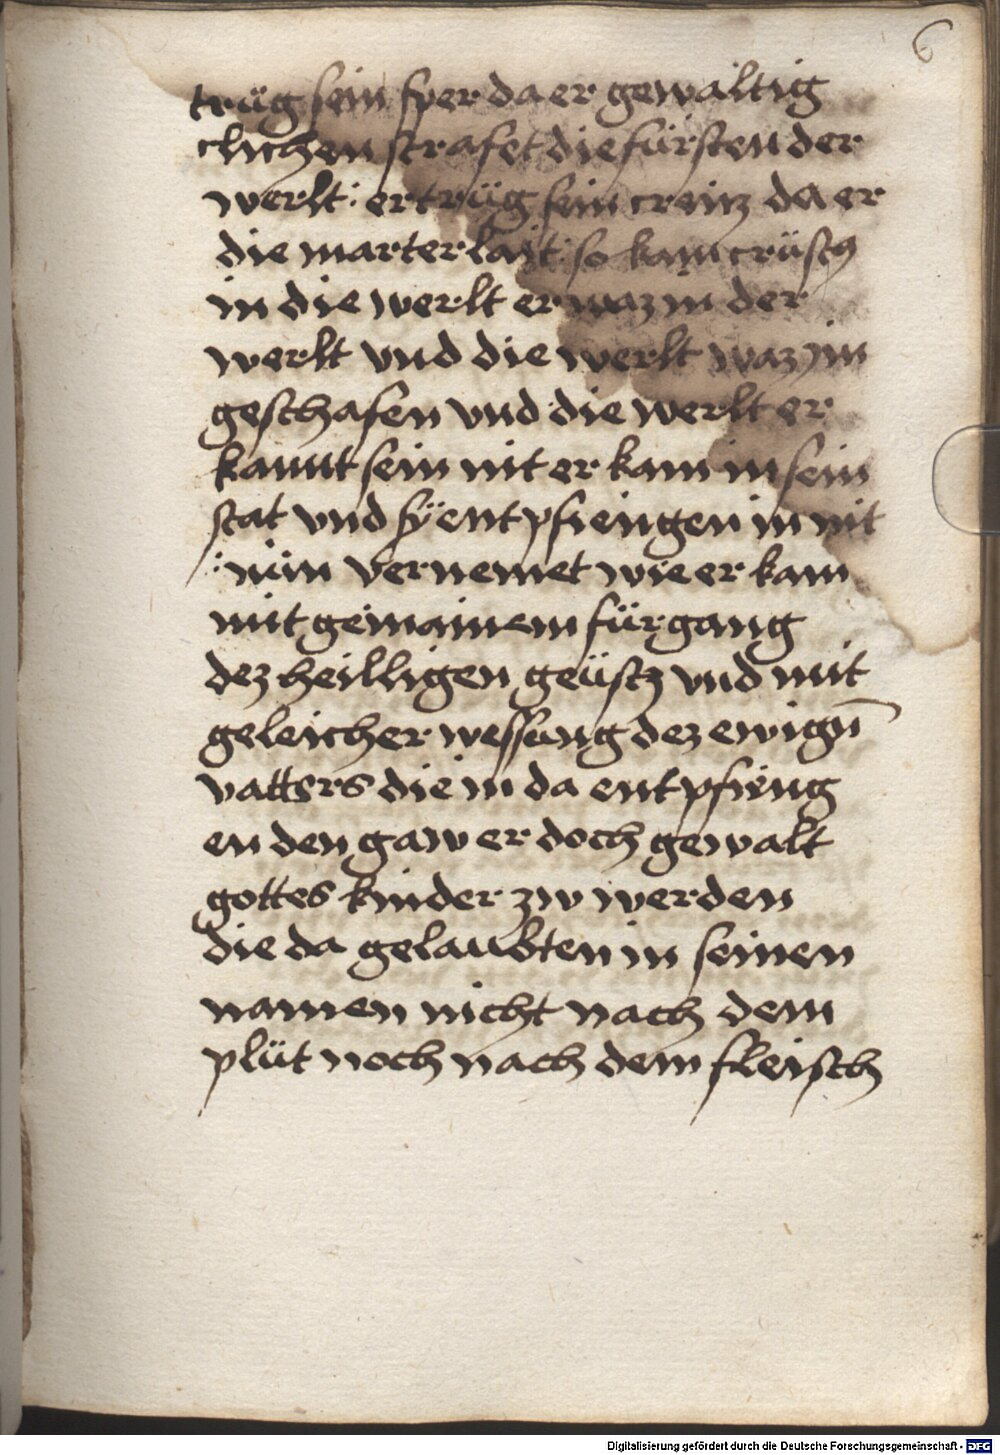 6
trüg sein sper da er gewaltig
clichen strafet die fürsten der
werlt : er trüg sein creücz da er
die marter lait : so kam crüstus
in die werlt er waz in der
werlt vnd die werlt waz im
geschafen vnd die werlt er
kannt sein nit er kam in sein
stat vnd sÿ entpfiengen in nit
: nün vernemet wie er kam
mit gemainem fürgang
dez heilligen geüstz vnd mit
geleicher wessung dez ewign̄
vatters die in da entpfieng
en den gaw er doch gewalt
gottes kinder zw werden
die da gelaubten in seinen
namen nicht nach dem
plüt noch nach dem fleisch
Digitalisierung gefördert durch die Deutsche Forschungsgemeinschaft - DFG